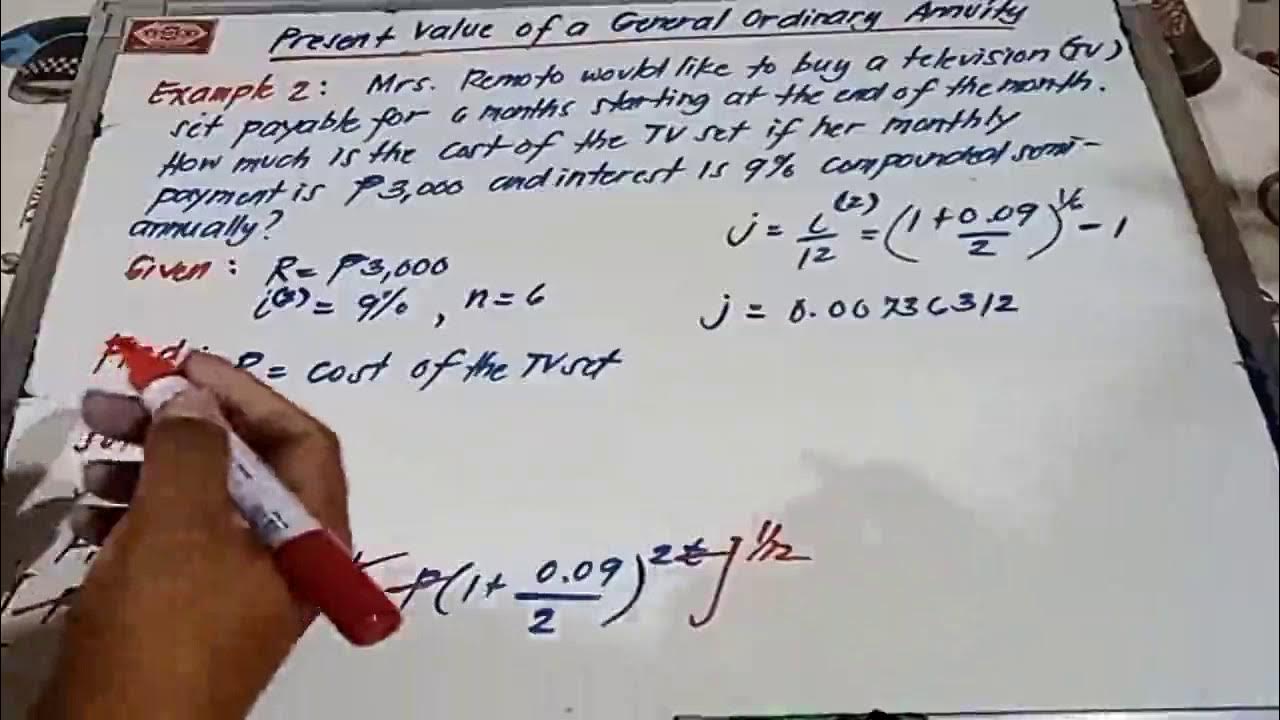 Present Value of a General Ordinary Annuity
Example 2: Mrs. Remoto would like to buy a television (TV)
set payable for 6 months starting at the end of the month.
How much is the cost of the TV set if her monthly
payment is ₱3,000 and interest is 9% compounded semi-
annually?
j = i^(2)/12 = (1+0.09/2)^1/6 - 1
Given: R = ₱3,000
i^(2) = 9%, n = 6
j = 0.00736312
Find: P = cost of the TV set
P(1+ 0.09/2)^2t]^1/12